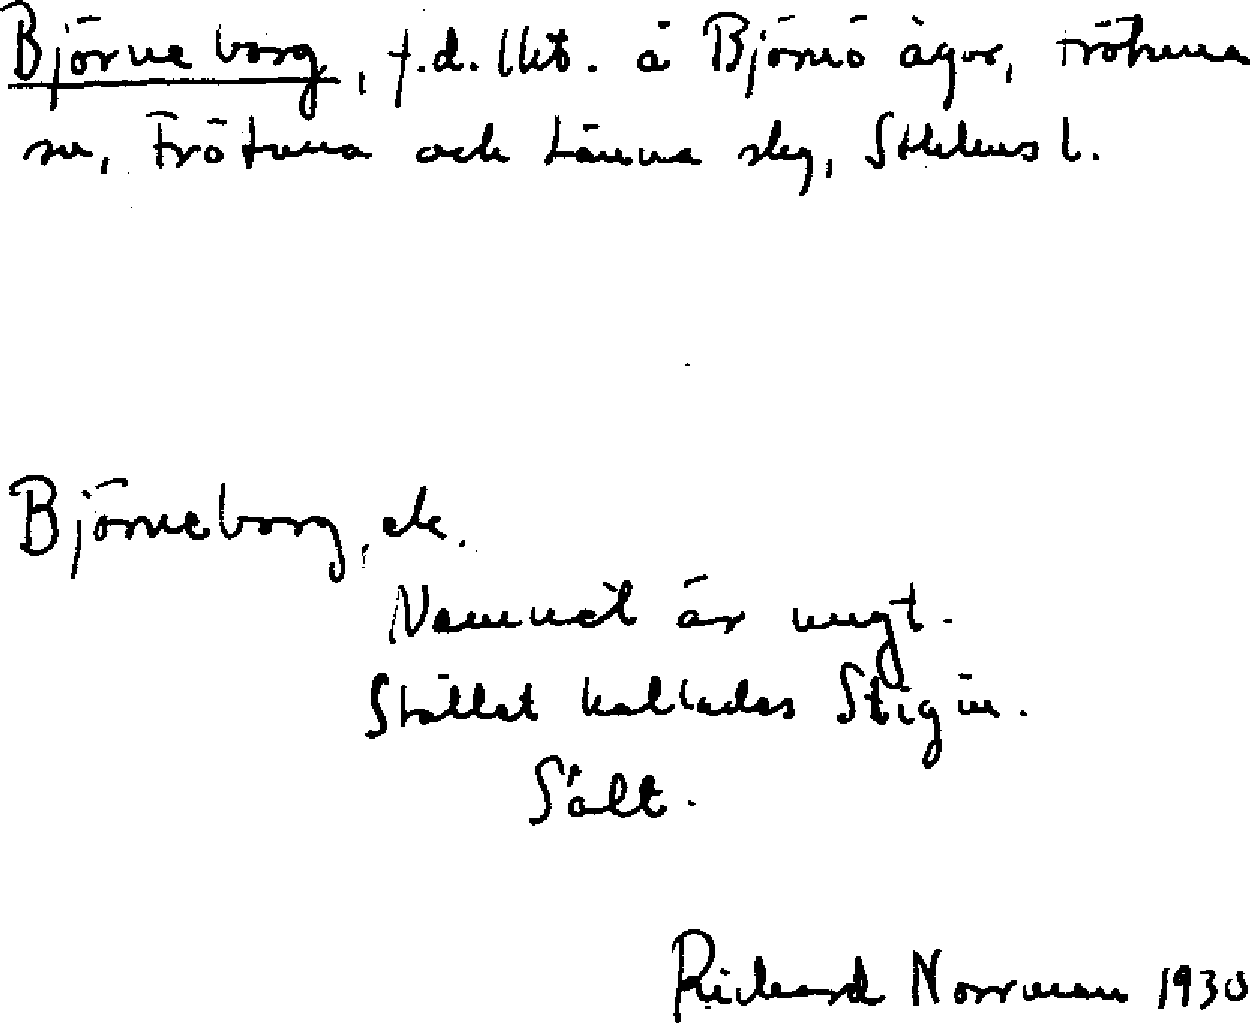 Björneborg, f.d. lht. å Björnö ägor, Frötuna
sn, Frötuna och Länna skg, Sthlms l.
Björneborg, ek.
Namnet är nygt.
Stället kallades Stigin.
Sålt.
Richard Norrman 1930